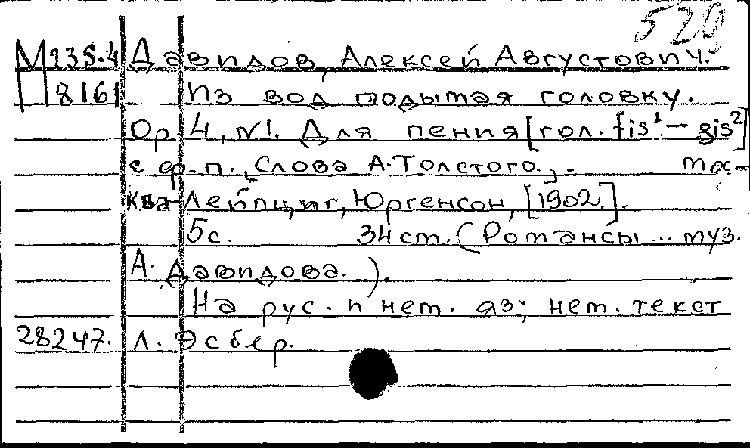 520
М235.4 Давидов, Алексей Августович.
П8161 Из вод подымая головку.
Ор 4, №1. Для пения [гол. fis¹ — gis²]
с ф-п., Слова А. Толстого., . Мос-
ква-Лейпциг, Юргенсон, [1902].
5с. 34 ст. (Романсы ... муз.
А. Давидова.).
На рус. и нем. яз; нем. текст
28247. Л. Эсбер.